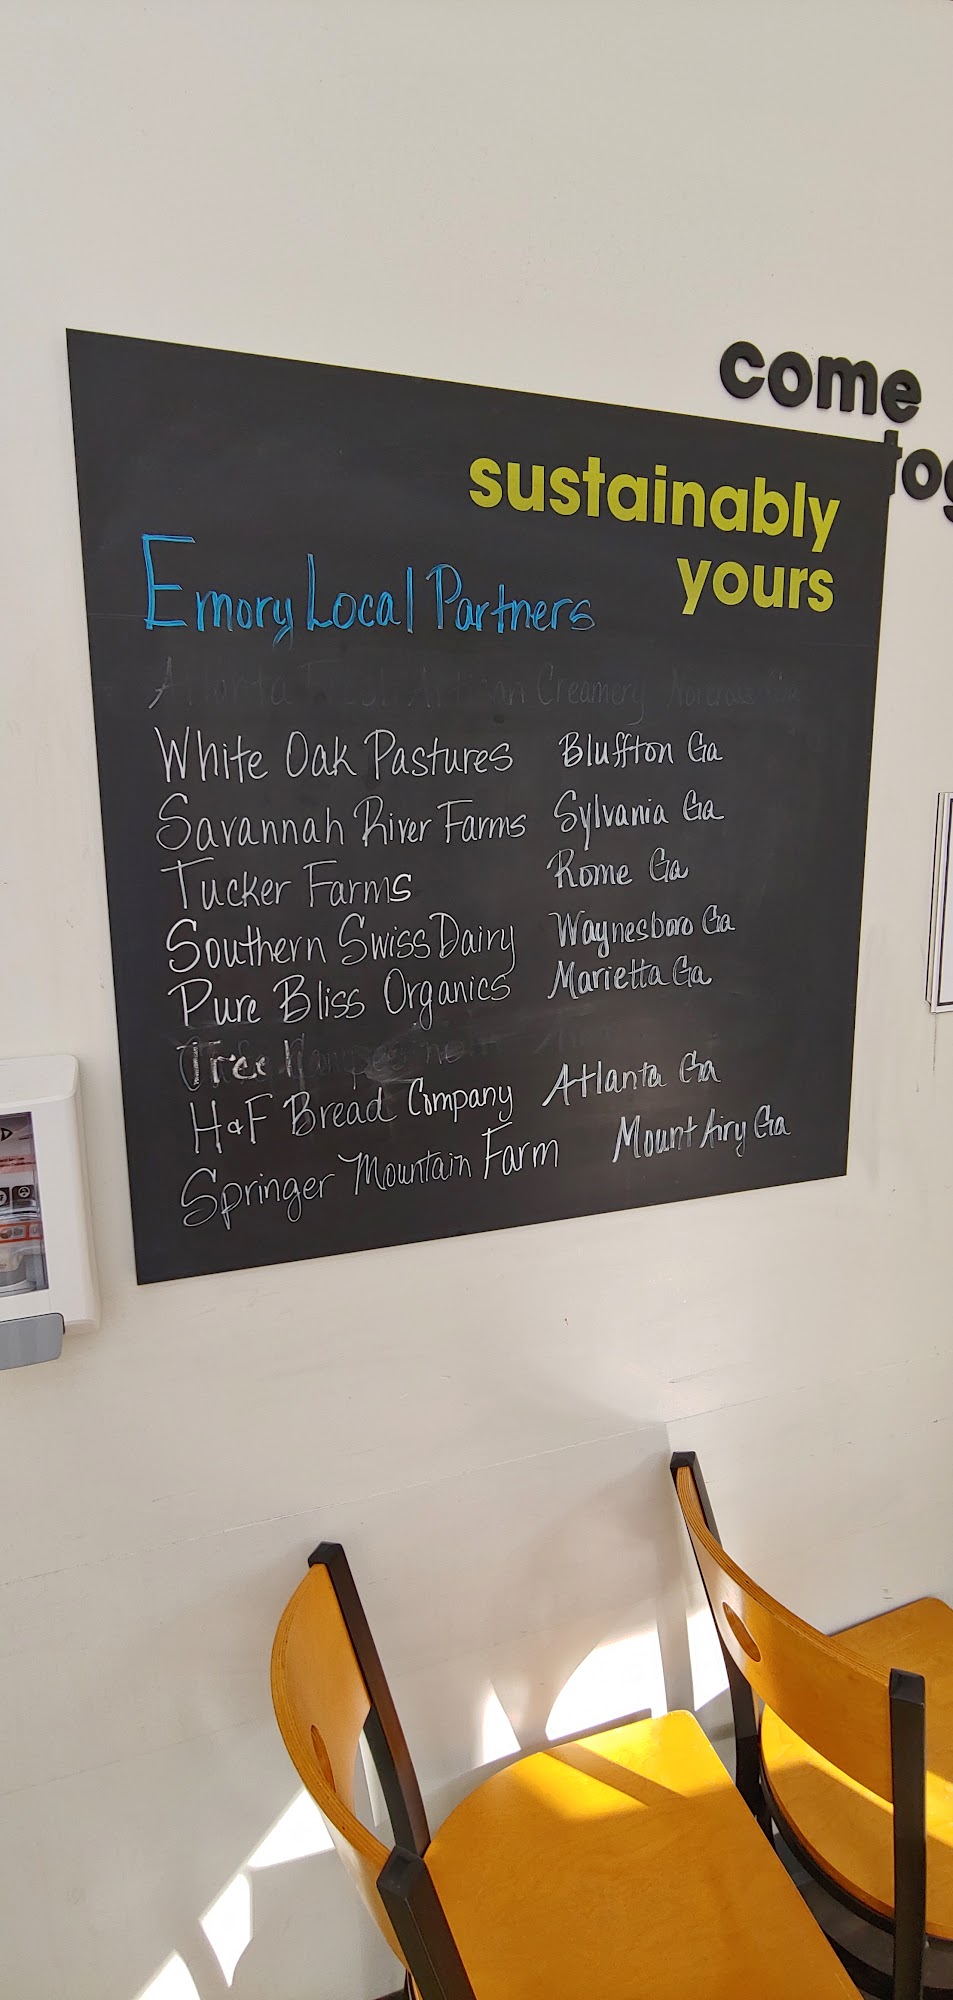 come
tog
sustainably
yours
Emory Local Partners
Atlanta Fresh Artisan Creamery Norcross Ga
White Oak Pastures Bluffton Ga
Savannah River Farms Sylvania Ga
Tucker Farms Rome Ga
Southern Swiss Dairy Waynesboro Ga
Pure Bliss Organics Marietta Ga
H&F Bread Company Atlanta Ga
Springer Mountain Farm Mount Airy Ga